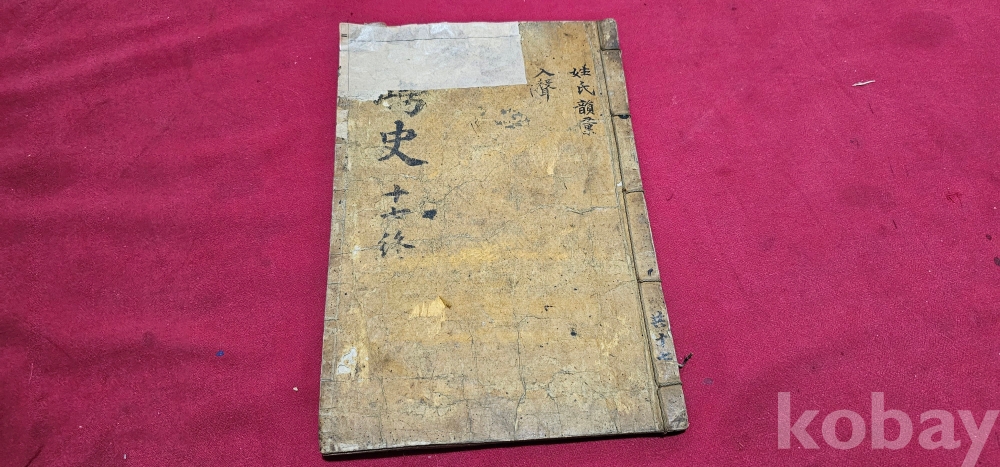 姓氏韻彙
入聲
史
十七終
共十七
kobay